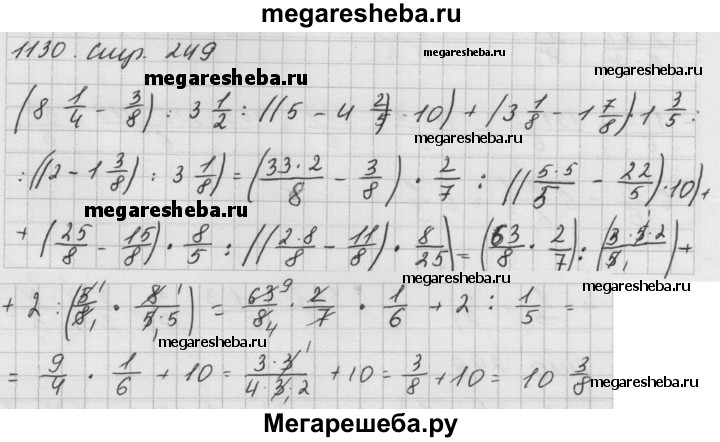 megaresheba.ru
1130. стр. 249
megaresheba.ru
megaresheba.ru
megaresheba.ru
(8 1/4 - 3/8) : 3 1/2 : ((5 - 4 2/5) · 10) + (3 1/8 - 1 7/8) · 1 3/5 :
megaresheba.ru
: ((2 - 1 3/8) : 3 1/8) = (33·2/8 - 3/8) · 2/7 : ((5·5/5 - 22/5) · 10) +
megaresheba.ru
+ (25/8 - 15/8) · 8/5 : ((2·8/8 - 11/8) · 8/25) = (63/8 · 2/7) : (3·5·2/5) +
megaresheba.ru
+ 2 : (5/8 · 8/5·5) = 63/8 · 2/7 · 1/6 + 2 : 1/5 =
megaresheba.ru
= 9/4 · 1/6 + 10 = 3·3/4·3·2 + 10 = 3/8 + 10 = 10 3/8
megaresheba.ru
Мегарешеба.ру